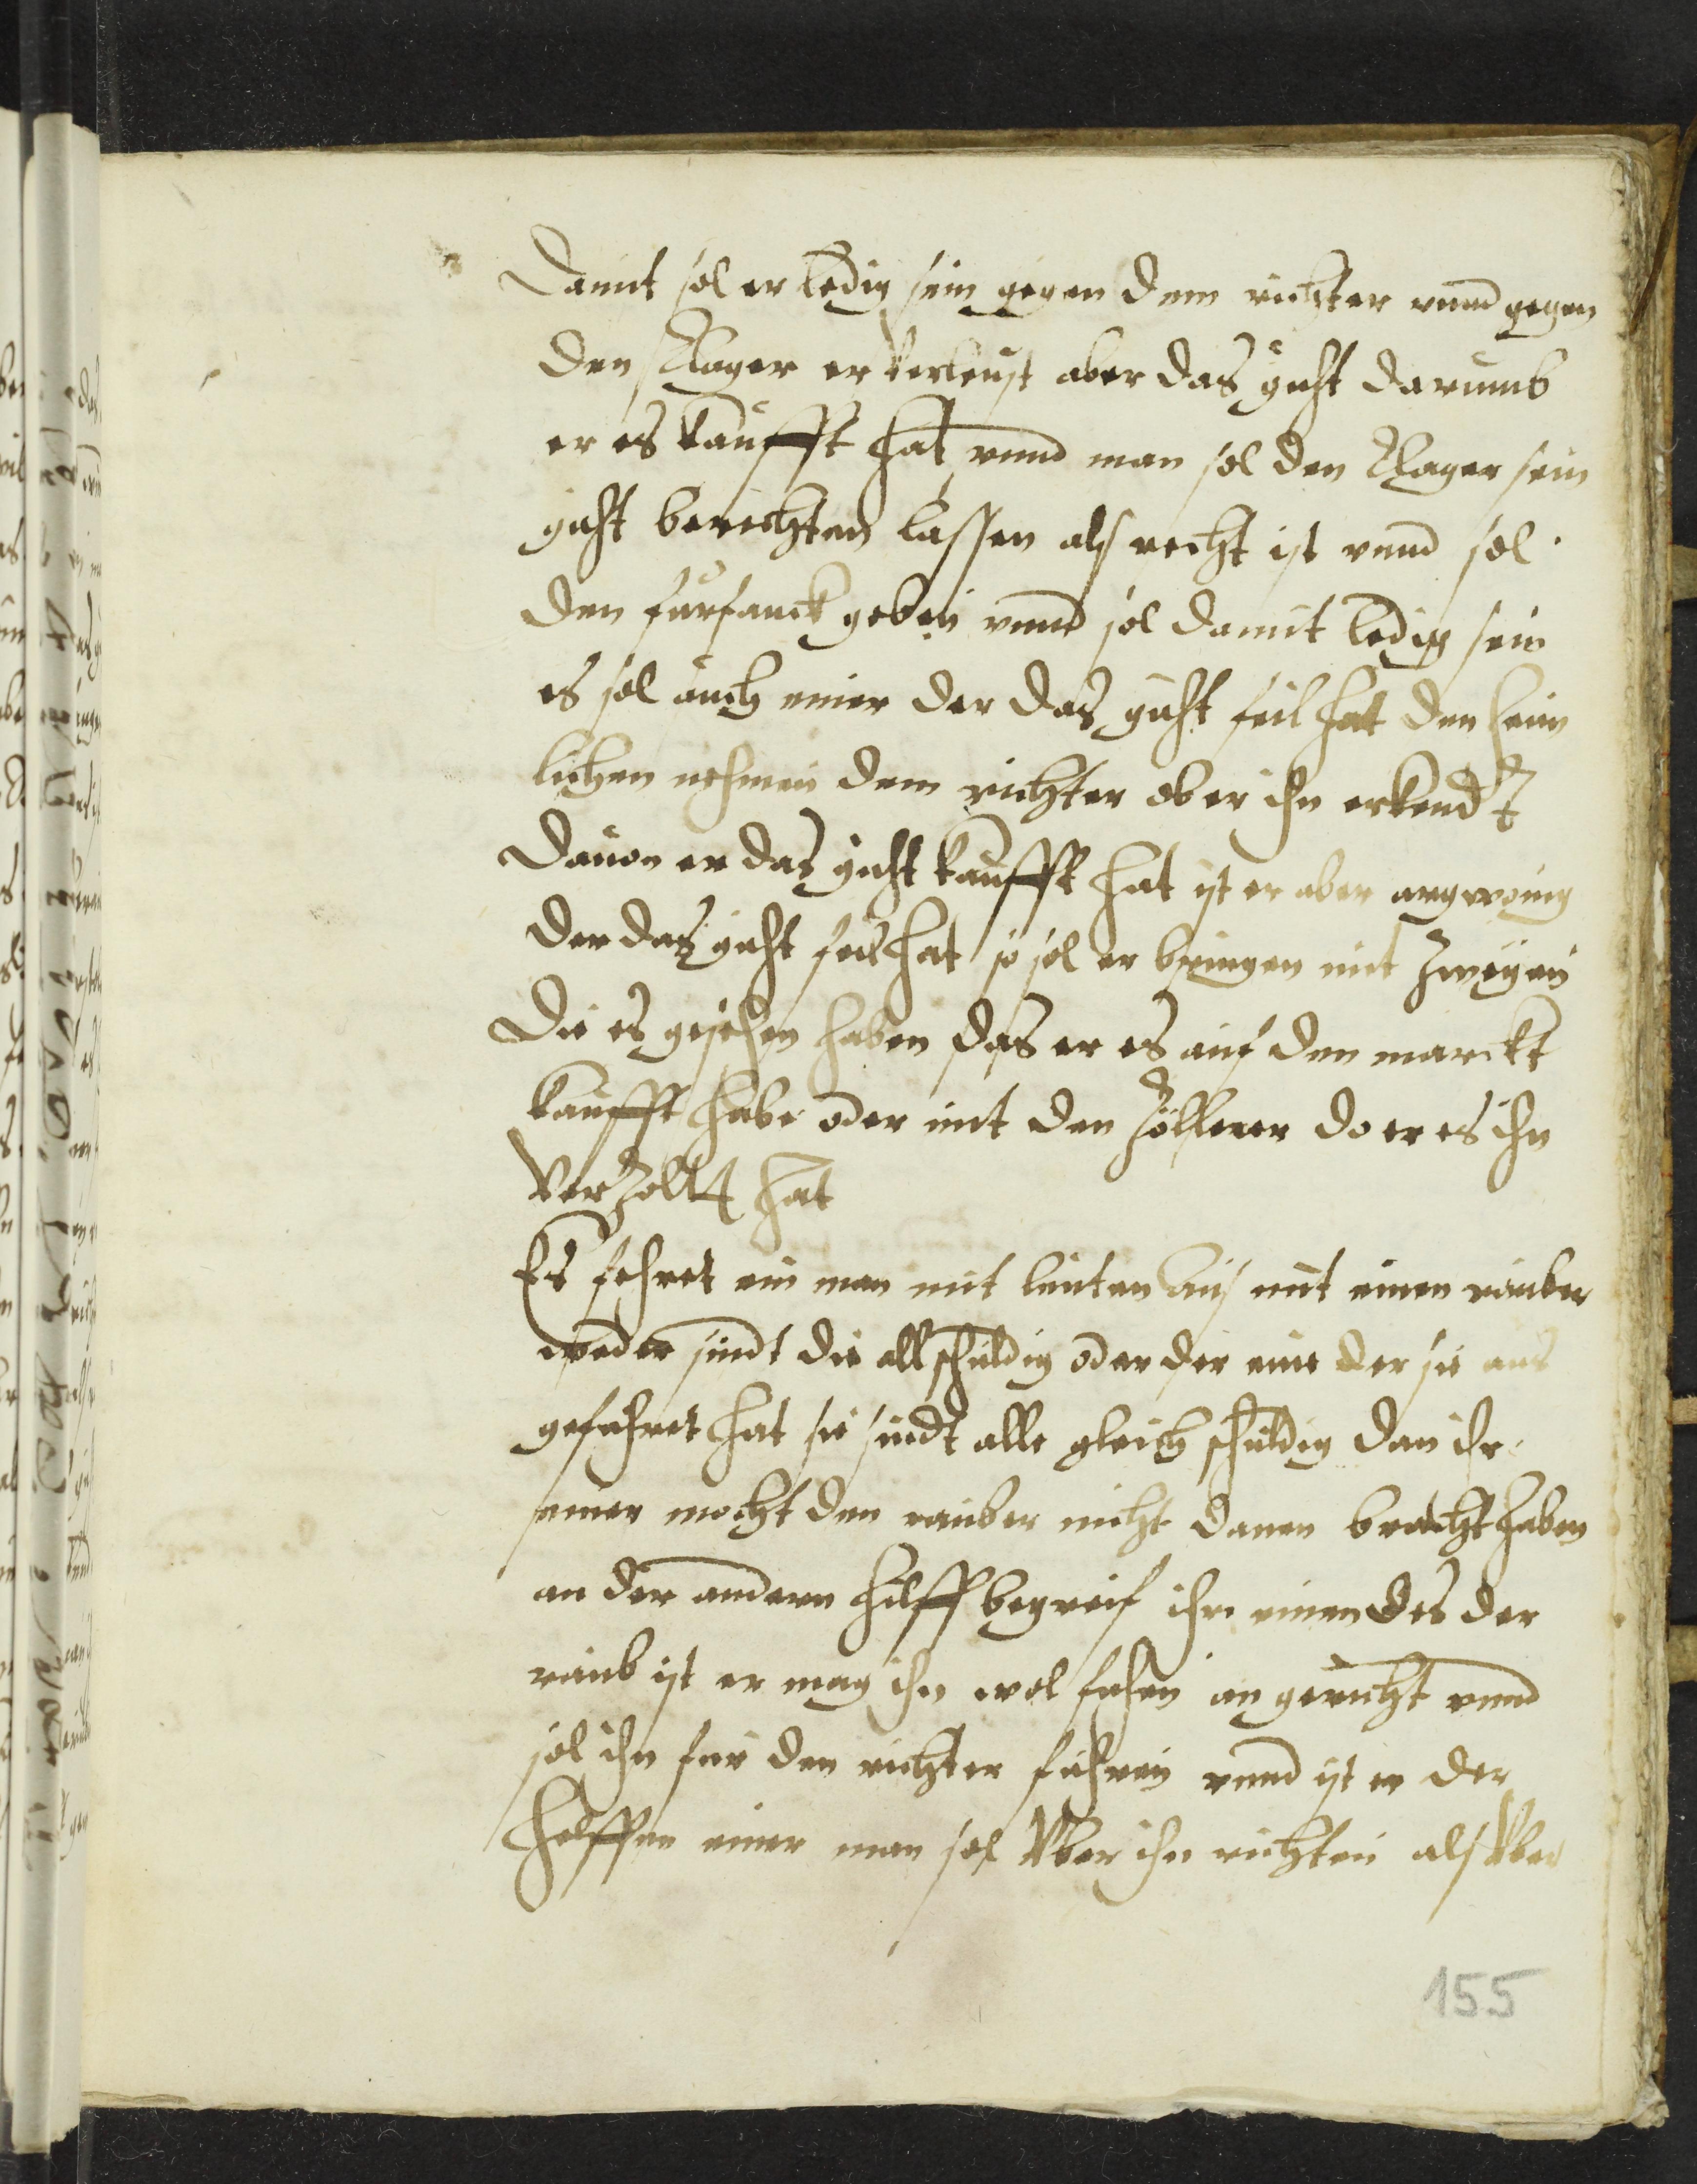 Damit sol er ledig sein gegen dem richter vnnd gegen
den Klager er verleust aber das guht darumb
er es kaufft hat vnnd man sol den Klager sein
guht berichten lassen als recht ist vnnd sol
den furfanck geben vnnd sol damit ledig sein
es sol auch einer der das guht feil hat den heim
lichen nehmen dem richter ob er ihn erkendt
dauon er das guht kaufft hat ist er aber argwonig
der das guht feil hat so sol er bringen mit zweyen
die es gesehen haben das er es auf den marckt
kaufft habe oder mit den zollener do er es ihn
verzollt hat
Es fehret ein man mit leuten aus mit einen rauber
weder sindt die all schuldig oder der eine der sie aus
gefuhret hat sie sindt alle gleich schuldig dan ihr
einer mocht den rauber nicht danen bracht haben
an der andern hilff begreif ihr einen des der
raub ist er mag ihn wol fahen an gericht vnnd
sol ihn fur den richter fuhren vnnd ist er der
helffer einer man sol Vber ihn richten als Vber
155